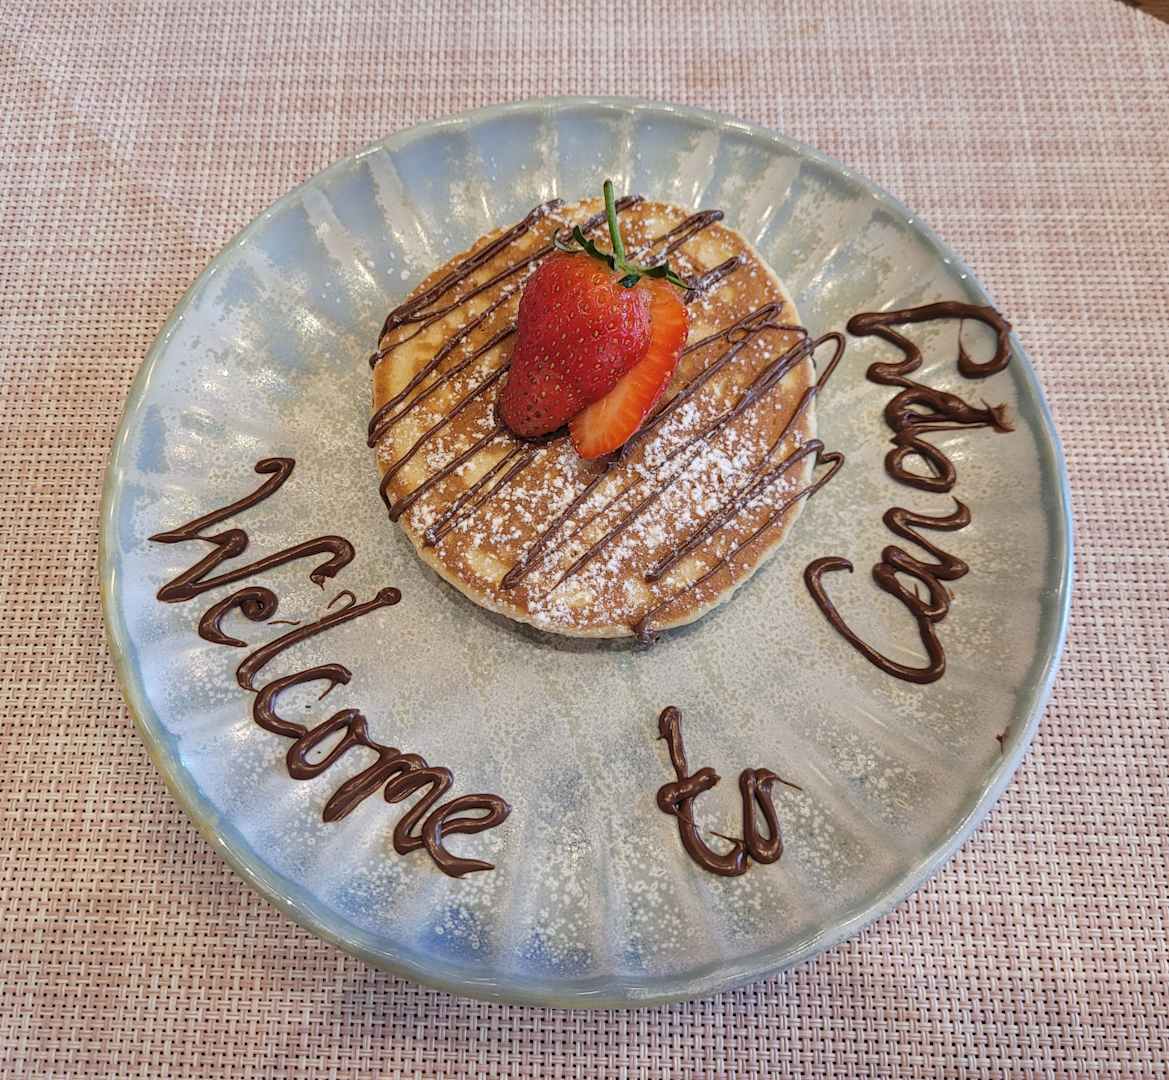 Welcome to Canopy